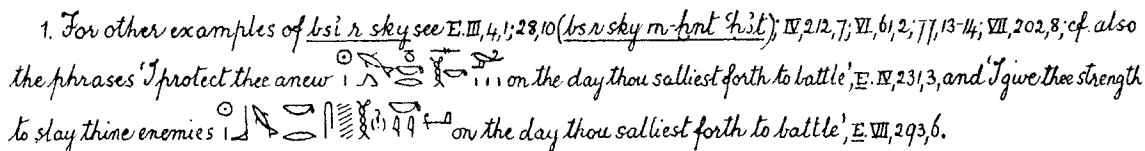 1. For other examples of bsỉ r sky see E. III, 4, 1; 28, 10 (bs r sky m-ḫnt ꜥḥꜣt); IV, 212, 7; VI, 61, 2; 77, 13-14; VII, 202, 8; cf. also
the phrases 'I protect thee anew on the day thou salliest forth to battle', E. IV, 231, 3, and 'I give thee strength
to slay thine enemies on the day thou salliest forth to battle', E. VII, 293, 6.